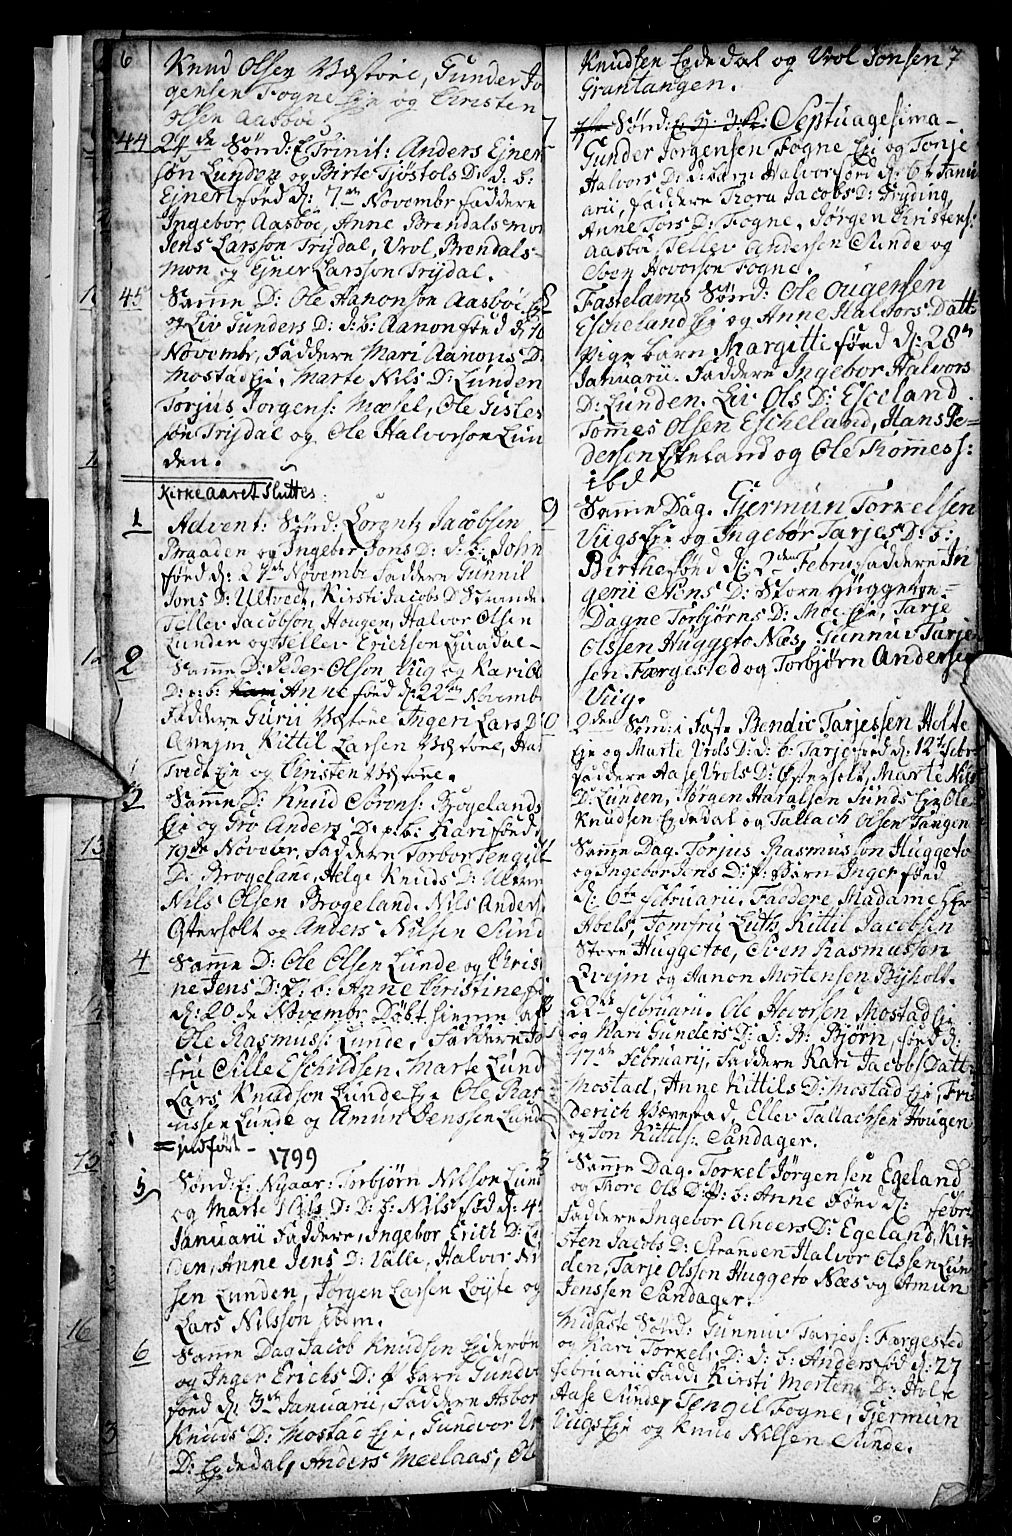 6
Knud Olsen Væstøel, Gunder Jo
gensen Fogne Eje og Christen
Olsen Aasbøe
44 24de Sønd: E: Trinit: Anders Ejner
søn Lunden og Birte Tjøstols D: d: b:
Ejnert født d: 7de Novembr faddere
Ingebor Aasbøe, Anne Brendalsmon
Jens Larsson Trijdal, Vrol Brendals-
mon og Ejner Larsson Trijdal.
45 Samme D: Ole Aanonsøn Aasbøe Eje
og Liv Gunders D: d: b: Aanon født d: 10
Novembr, Faddere Mari Aanons D:
Mostad Eje, Marte Nils D: Lunden
Torjus Jorgens: Mæsel, Ole Gisle
søn Trijdal og Ole Halvorson Lun
den.
Kirke aaret Sluttes:
1 Advent: Sønd: Lorentz Jacobsen
Braaden og Ingebor Jons D: d: b: John
født d: 27de Novembr Faddere Gunnil
Jons D: Ultvedt, Kirsti Jacobs D:
Tellev Jacobson Hougen, Halvor Olsen
Lunden og Tellev Erickson Ljosdal
2 Samme D: Peder Olson Vig og Kari Ols
D: d: b: Anne født d: 22de Novembr
Faddere Gurii Væstøel, Ingeri Lars D:
Qvejm, Kittil Larsen Væstøel,
Tvedt Eje og Christen Væstøel.
3 Samme D: Knud Sørens: Brogelands
Eje og Gro Anders D: p: b: Kari født d
19de Novebr, Faddere Torbor Tengils
D: Brogeland, Helge Knuds D:
Nils Olsen Brogeland. Nils Anders
Østerholt og Anders Nilsen Sund
4 Samme D: Ole Olsen Lunde og Chris
ne Jens D: d: b: Anne Christine fø
d: 20de Novembr Døbt hiemme af
Ole Rasmus: Lunde, Faddere Jo
fru Cille Eschildsen, Marte Lund
Lars Knudson Lunde Eje Ole Ras
ussen Lunde og Amun Jenssen Lund
indført-
1799
5 Sønd: f: Nyaar: Torbjørn Nilson Lund
og Marte Nils D: D: b: Nils fød d: 4de
Januarii Faddere, Ingebor Erich D: Lu
den, Anne Jens D: Valle, Halvor Ni
sen Lunden, Jørgen Larsen Løyte og
Lars Nilsson ibdm.
6 Samme Dag Jacob Knudsen Ejderøn
og Inger Erichs D: p barn Gundvo
født d. 3de Januarii, Faddere Asbor
Knuds D: Mostad Eje, Gundvor Vr
D: Egdedal, Anders Meelaas, Ole
7
Knudsen Egdedal og Vrol Jonsen
Grantangen.
7 Sønd: Septuagesima-
Gunder Jorgensen Fogne Eje og Tonje
Halvors D: d: barn Halvor født d: 6te Janu
arii, faddere Thora Jacobs D: Fryding
Anne Tors D: Fogne, Jørgen Christens:
Aasbø, Tellev Andersen Sunde og
Sven Hovorson Fogne.
8 Fastelavns Sønd: Ole Ougensen
Escheland Eje og Anne Halvors Datt
Pige barn Margitte født d: 28de
Januarii. Faddere Ingebor Halvors
D: Lunden. Liv Ols D: Eseland
Tomes Olsen Escheland, Hans Pe-
dersen Eskeland og Ole Thomess:
ibdt
9 Samme Dag. Gjermun Torkelsen
Viigs Eje og Ingebør Tarjes D: b:
Birthe født d: 2den Febru. faddere In
gerii Stens D: Store Hüggetoe-
Dagne Torbjørns D: Moe Eje, Tarje
Olssen Huggeto Næs, Gunnuv Tarje
sen Færgested og Torbjørn Andersen
Viig.
2den Sønd: i Faste Bendic Tarjessen Holte
Eje og Marte Vrols D: d: b: Tarje født d: 12te Febr
Faddere Aase Vrols D: Østerholt, Marte Nils
D: Lunden, Jørgen Haralsen Sunds Eje Ole
Knudsen Egdedal og Tallach Olsen Tangen
Samme Dag. Torjus Rasmusson Huggeto
og Ingebor Jens D: p: Barn Inger født
d: 6te Februarii. Faddere Madame
Hoels, Jomfru Luth, Kittil Jacobsen
Store Huggetoe, Even Rasmusson
Qvejm og Aanon Mortensen Bijholt.
22de Februarii. Ole Hovorsen Mostad Eje
og Kari Gunders D: d: b: Bjørn, fød d:
17de Februarii, Faddere Kari Jacobs Datt
Mostad, Anne Kittils D: Mostad Eje, Fri
derich Væresad, Ellev Tallachsen Hougen
og Jon Kittils: Sandager.
Samme Dag. Torkel Jørgensen Egeland
og Thore Ols D: p: b: Anne Født d: febr
Faddere Ingebor Anders D: Egeland, Kir-
sten Jacobs D: Stranden Halvor Olssen Lun
den, Tarje Olsson Huggeto Næs og Amun
Jenssen Sandager.
Midfaste Sønd: Gunnuv Tarjess: Fargested
og Kari Torkels D: d: b: Anders fød d: 27
Februarii Fadd: Kirsti Morten D: Holte
Aase Sunde, Tengil Fogne, Gjermun
Viigs Eje og Knud Nilsen Sunde.